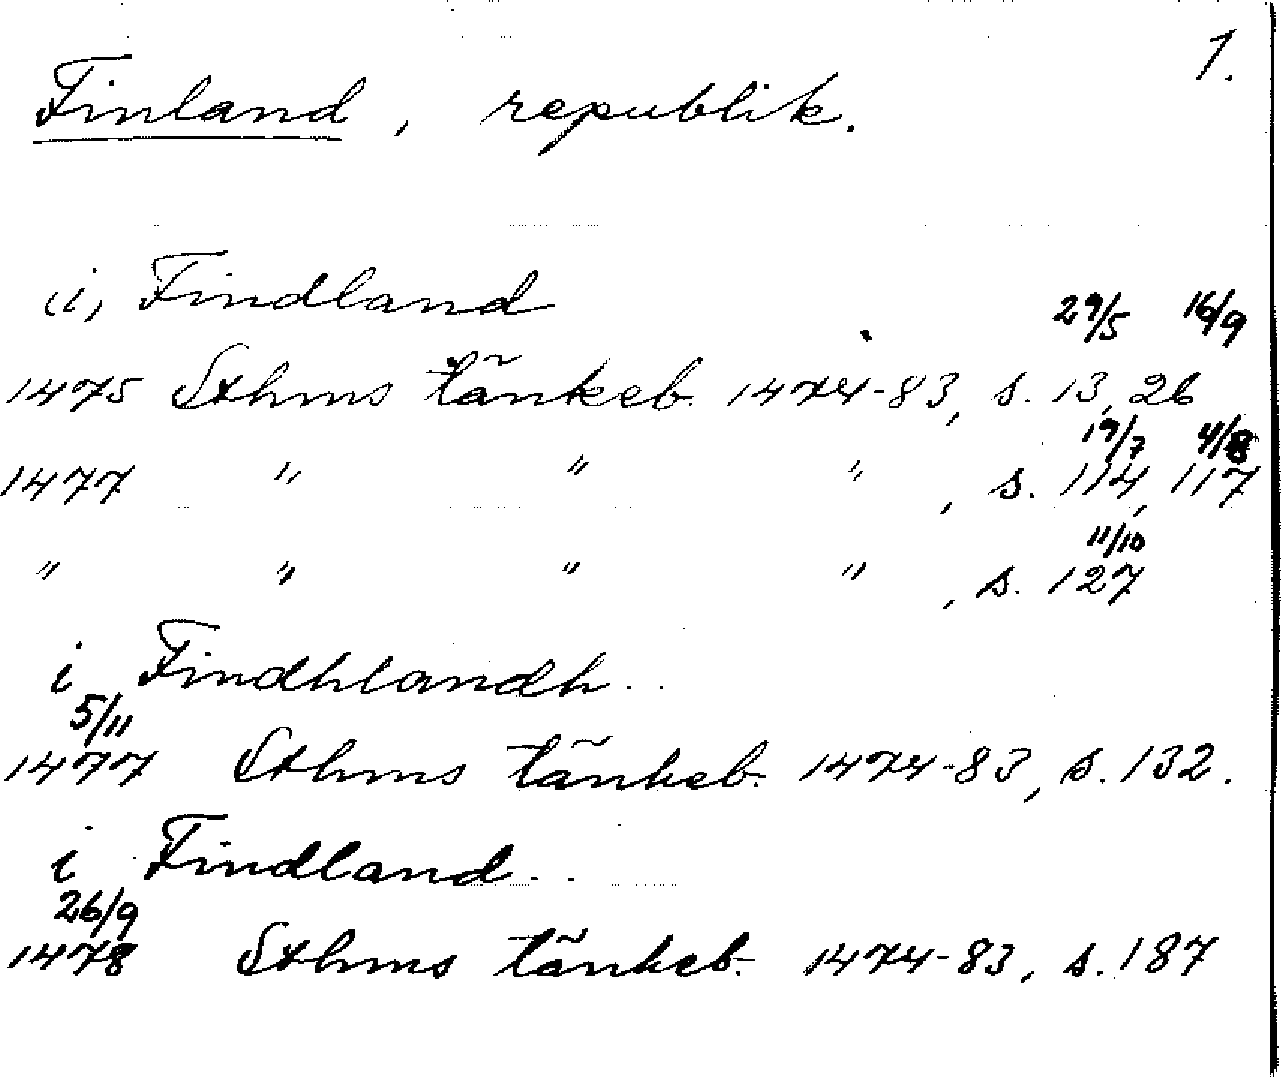 1.
Finland, republik.
(i) Findland
29/5 16/9
1475 Sthms tänkeb. 1474-83, s. 13, 26
19/7 4/8
1477 " " " , s. 114, 117
11/10
" " " " , s. 127
i Findhlandh
5/11
1477 Sthms tänkeb. 1474-83, s. 132.
i Findland
26/9
1478 Sthms tänkeb. 1474-83, s. 187